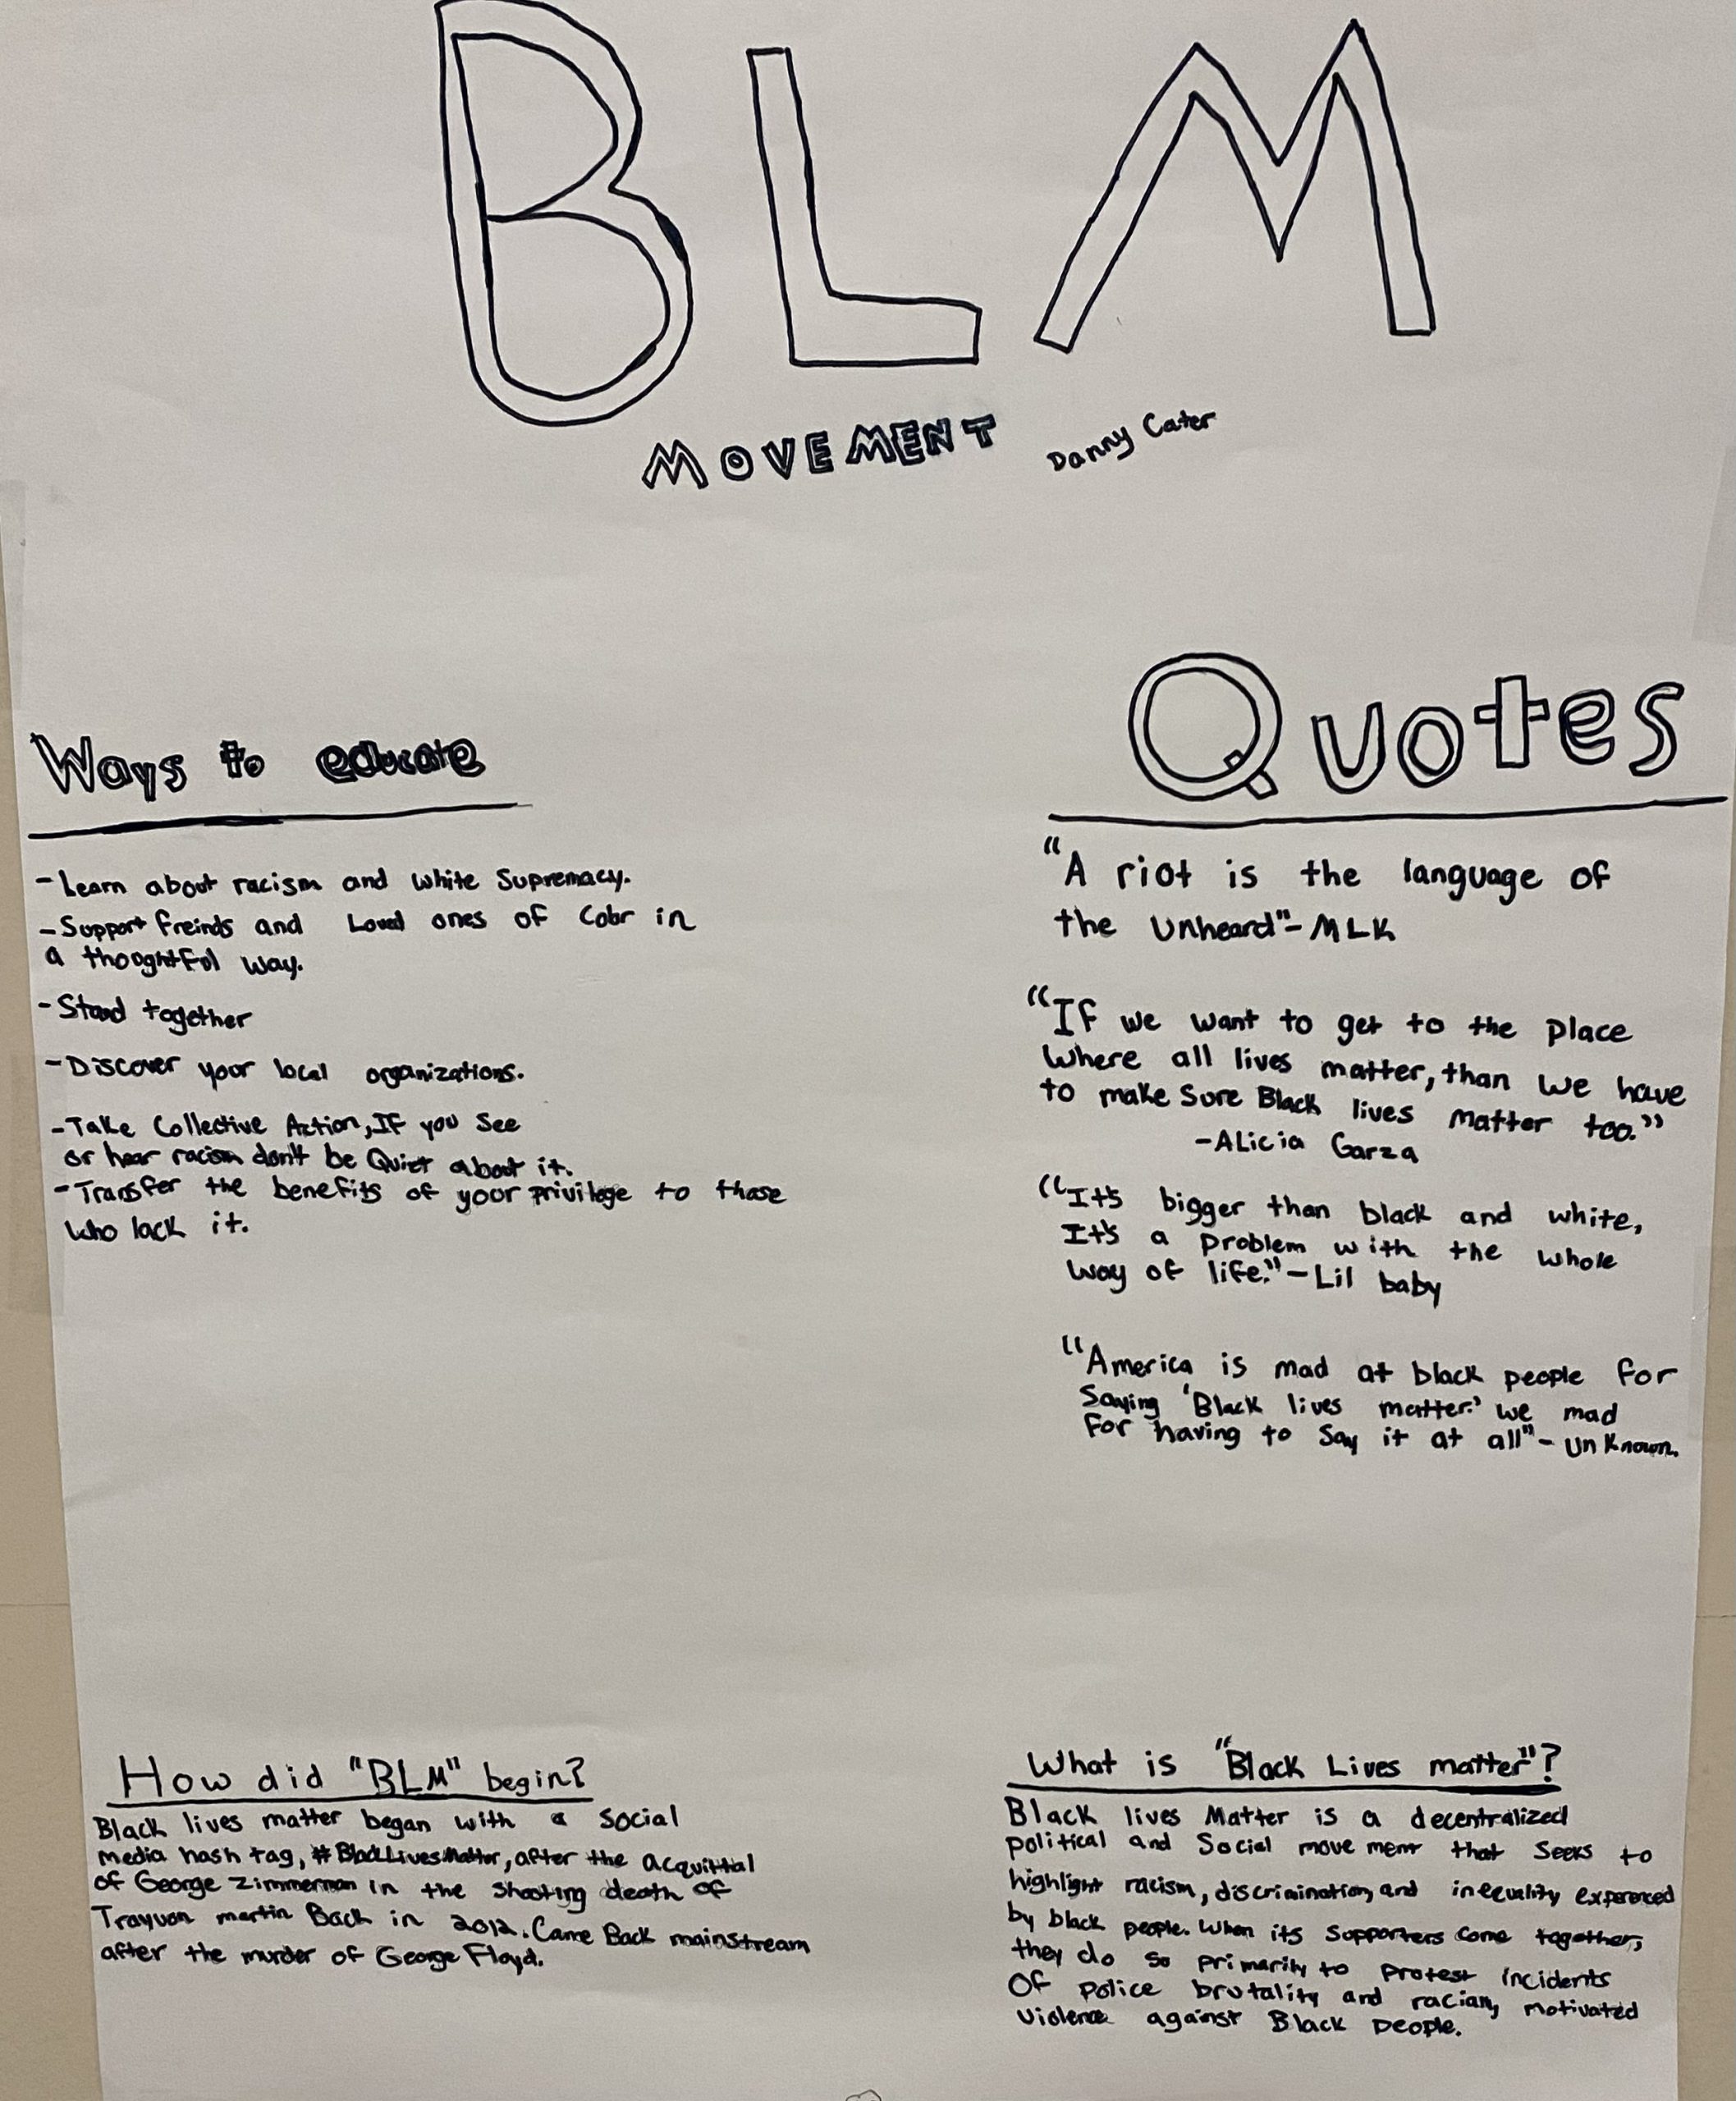 BLM
MOVEMENT
Danny Cater
Ways to educate
-Learn about racism and white Supremacy.
-Support freinds and Loved ones of Color in
a thoughtful way.
-Stand together
-Discover your local organizations.
-Take Collective Action, If you See
or hear racism don't be Quiet about it.
-Transfer the benefits of your privilege to those
who lack it.
Quotes
"A riot is the language of
the Unheard"-MLK
"If we want to get to the Place
Where all lives matter, than we have
to make Sure Black lives matter too."
-Alicia Garza
"It's bigger than black and white,
It's a Problem with the whole
way of life."-Lil baby
"America is mad at black people for
Saying 'Black lives matter.' we mad
for having to Say it at all"- Unknown.
How did "BLM" begin?
Black lives matter began with a Social
media hash tag, #BlackLivesMatter, after the acquittal
of George Zimmerman in the Shooting death of
Trayvon martin Back in 2012. Came Back mainstream
after the murder of George Floyd.
What is "Black Lives matter"?
Black lives Matter is a decentralized
political and Social movement that Seeks to
highlight racism, discrimination, and inequality experenced
by black people. When its Supporters come together,
they do so primarily to Protest incidents
Of police brutality and motivated
violence against Black People.